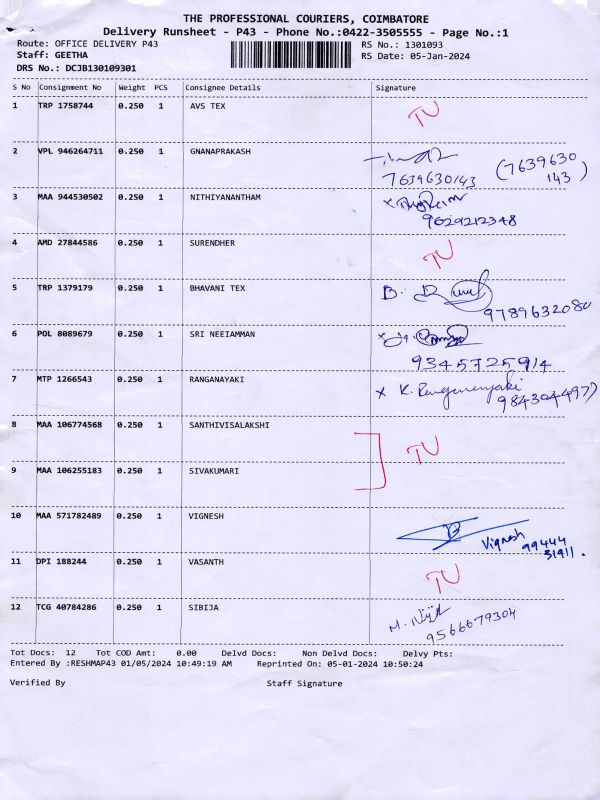 THE PROFESSIONAL COURIERS, COIMBATORE
Delivery Runsheet - P43 - Phone No.:0422-3505555 - Page No.:1
Route: OFFICE DELIVERY P43 RS No.: 1301093
Staff: GEETHA RS Date: 05-Jan-2024
DRS No.: DCJB130109301
S No Consignment No Weight PCS Consignee Details Signature
1 TRP 1758744 0.250 1 AVS TEX TU
2 VPL 946264711 0.250 1 GNANAPRAKASH
7639630143 (7639630
143)
3 MAA 944530502 0.250 1 NITHIYANANTHAM x
9629212348
4 AMD 27844586 0.250 1 SURENDHER TU
5 TRP 1379179 0.250 1 BHAVANI TEX B.
9789632080
6 POL 8089679 0.250 1 SRI NEEIAMMAN
9345725914
7 MTP 1266543 0.250 1 RANGANAYAKI x K.
8 MAA 106774568 0.250 1 SANTHIVISALAKSHI
TU
9 MAA 106255183 0.250 1 SIVAKUMARI
10 MAA 571782489 0.250 1 VIGNESH
Vignesh
99444
31911.
11 DPI 188244 0.250 1 VASANTH TU
12 TCG 40784286 0.250 1 SIBIJA M.
9566679304
Tot Docs: 12 Tot COD Amt: 0.00 Delvd Docs: Non Delvd Docs: Delvy Pts:
Entered By :RESHMAP43 01/05/2024 10:49:19 AM Reprinted On: 05-01-2024 10:50:24
Verified By Staff Signature